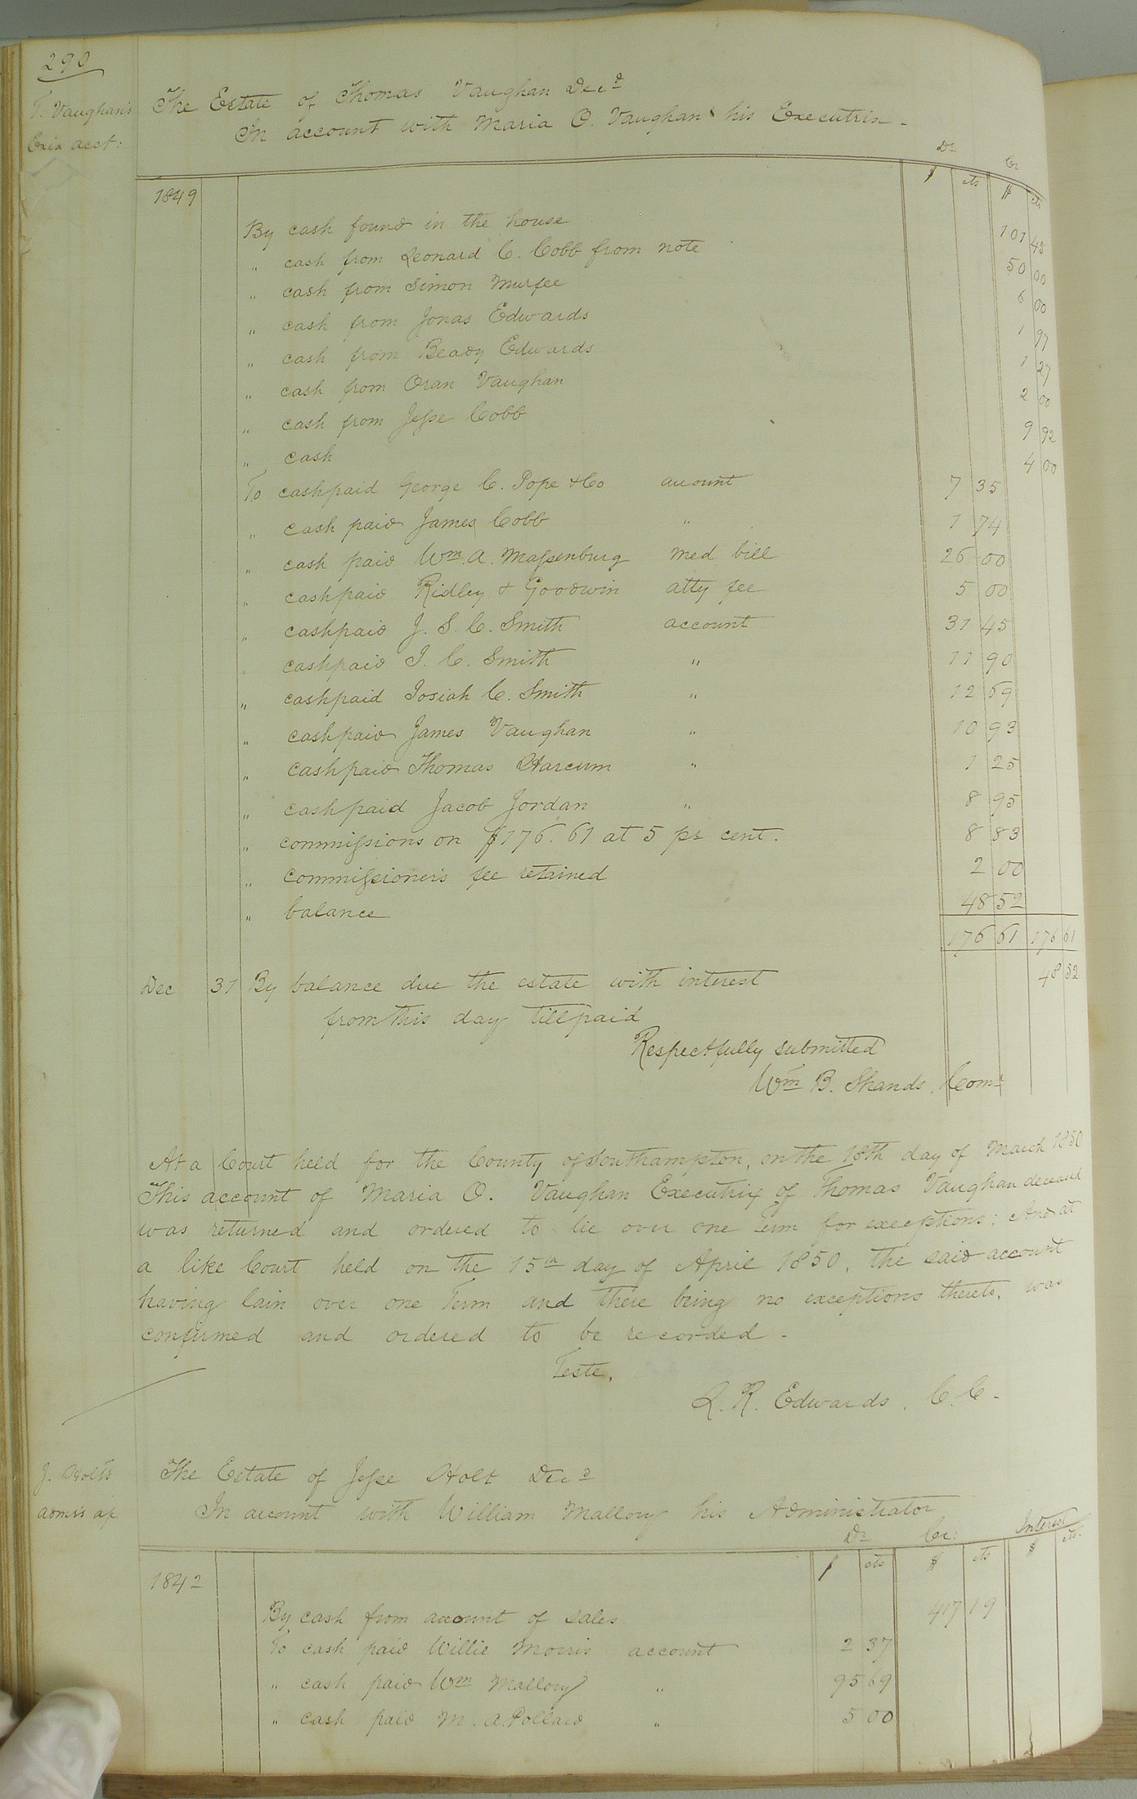 290
T. Vaughan's
Exix acct:
The Estate of Thomas Vaughan Decd
In account with Maria O. Vaughan his Executrix -
Dr Cr
$ cts $ cts
1849
By cash found in the house 101 45
" cash from Leonard C. Cobb from note 50 00
" cash from Simon Murfee 6 00
" cash from Jonas Edwards 1 97
" cash from Beady Edwards 1 27
" cash from Oran Vaughan 2 00
" cash from Jesse Cobb 9 92
" cash 4 00
To cash paid George C. Pope & Co account 7 35
" cash paid James Cobb " 1 74
" cash paid Wm. A. Massenburg med bill 26 00
" cash paid Ridley & Goodwin atty fee 5 00
" cash paid J. S. C. Smith account 31 45
cash paid I. C. Smith " 11 90
" cash paid Josiah C. Smith " 12 69
" cash paid James Vaughan " 10 93
" cash paid Thomas Harcum " 1 25
" cash paid Jacob Jordan " 8 95
" commissions on $176.61 at 5 pr cent. 8 83
" commissioner's fee retained 2 00
" balance 48 52
176 61 176 61
Dec 31 By balance due the estate with interest 48 52
from this day till paid
Respectfully submitted
Wm B. Shands, Comr
At a Court held for the County of Southampton, on the 18th day of March 1850
This account of Maria O. Vaughan Executrix of Thomas Vaughan deceased
was returned and ordered to lie over one Term for exceptions: And at
a like Court held on the 15th day of April 1850, the said account
having lain over one Term and there being no exceptions thereto, was
confirmed and ordered to be recorded -
Teste,
L. R. Edwards, C. C.
J. Holt's
Admr's a/c
The Estate of Jesse Holt Decd
In account with William Mallory his Administrator
Dr Cr: Interest
$ cts $ cts $ cts.
1842
By cash from account of sales 417 19
To cash paid Willie Morris account 2 37
" cash paid Wm Mallory " 95 69
" cash paid M. A. Pollard " 5 00